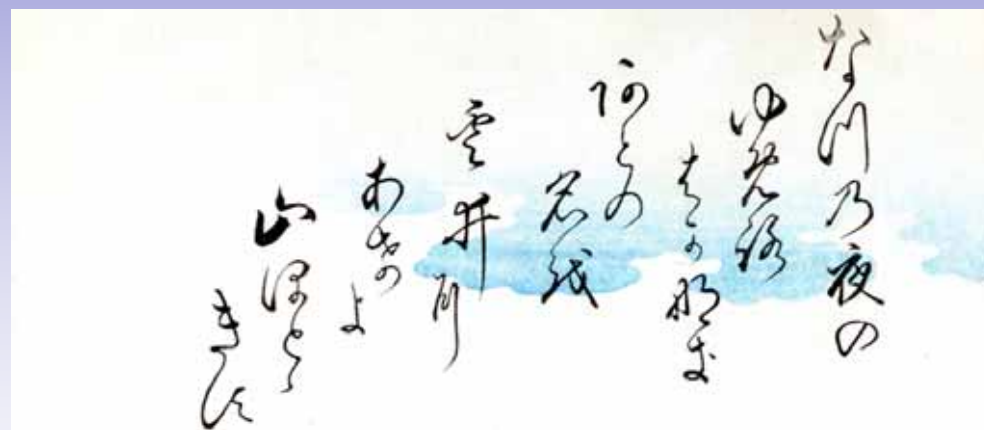 なつ乃夜の
ゆめ路
はかなき
阿との
名越
雲井に
あけよ
山ほとゝ
きす